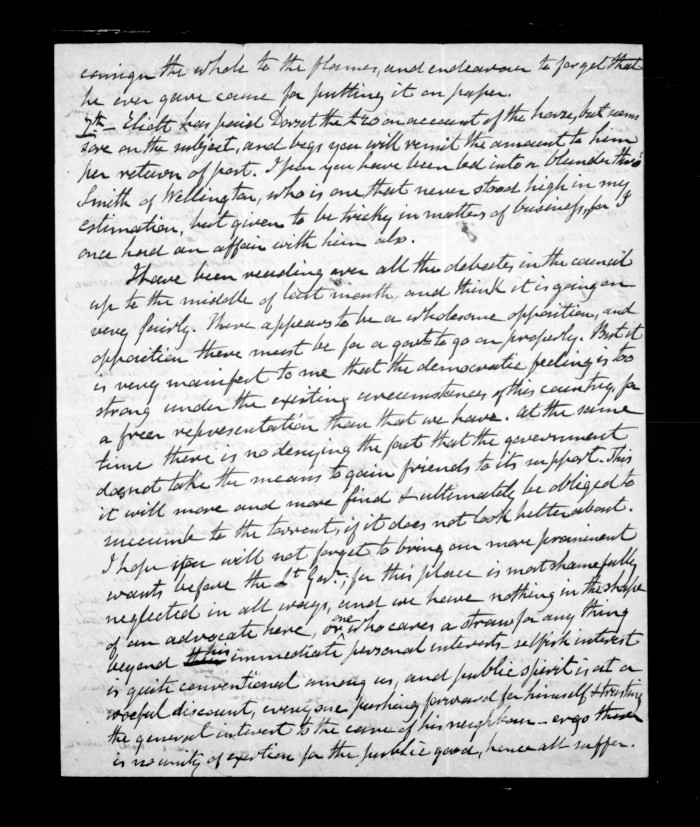 consign the whole to the flames, and endeavour to forget that
he ever gave cause for putting it on paper.
7th – Eliott has paid Dorset the on account of the horse, but seems
sore on the subject, and begs you will remit the amount to him
per return of post. I fear you have been led into a blunder thro'
Smith of Wellington, who is one that never stood high in my
estimation, but given to be tricky in matters of business, for I
once had an affair with him also.
I have been reading over all the debates in the council
up to the middle of last month, and think it is going on
very fairly. There appears to be a wholesome opposition, and
opposition there must be for a govt to go on properly. But it
is very manifest to me that the democratic feeling is too
strong under the existing circumstances of this country, for
a freer representation than that we have. At the same
time there is no denying the fact that the government
does not take the means to gain friends to its support. This
it will more and more find & ultimately be obliged to
succumb to the torrent, if it does not look better about.
I hope you will not forget to bring our more prominent
wants before the Lt Govr; for this place is most shamefully
neglected in all ways, and we have nothing in the shape
of an advocate here, or one who cares a straw for any thing
beyond his immediate personal interests – selfish interest
is quite conventional among us, and public spirit is at a
woeful discount, every one pushing forward for himself & trusting
the general interest to the care of his neighbour – ergo there
is no unity of exertion for the public good, hence all suffer.